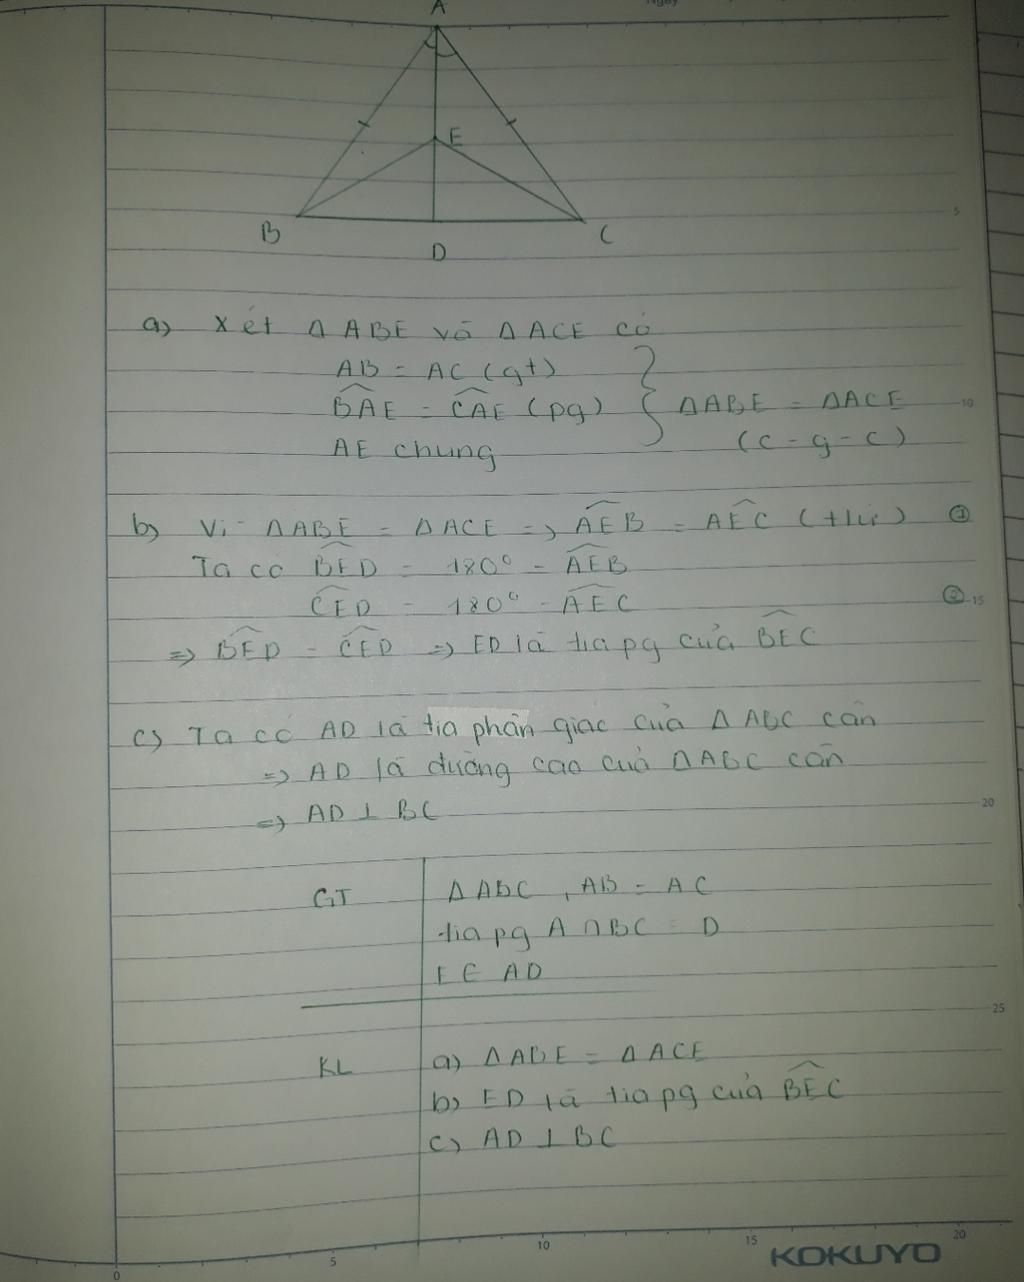 Ngày
A
E
B
C
D
5
a) Xét Δ ABE và Δ ACE có
AB = AC (gt)
BAE = CAE (pg) } ΔABE = ΔACE
10
AE chung
(c - g - c)
b) Vì ΔABE = ΔACE => AEB = AEC (+)
Ta có BED = 180° - AEB
CED = 180° - AEC ②
15
=> BED = CED => ED là tia pg của BEC
c) Ta có AD là tia phân giác của Δ ABC cân
=> AD là đường cao của ΔABC cân
=> AD ⊥ BC
20
GT
Δ ABC , AB = AC
tia pg A ∩ BC = D
E ∈ AD
25
KL
a) ΔABE = ΔACE
b) ED là tia pg của BEC
c) AD ⊥ BC
0 5 10 15 20
KOKUYO